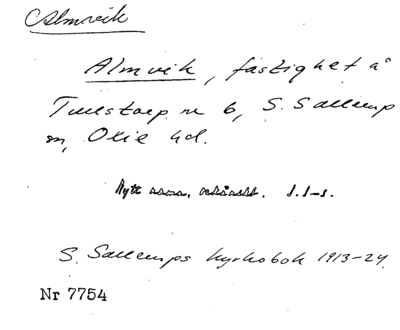 Almvik
Almvik, fastighet å
Tullstorp nr 6, S. Sallerup
sn, Oxie hd.
Nytt namn, okänt. I. I-s.
S. Sallerups kyrkobok 1913-24.
Nr 7754